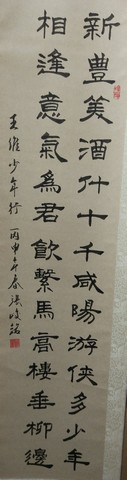 新豐美酒什十千咸陽游俠多少年
相逢意氣為君飲繫馬高樓垂柳邊
王維少年行 丙申年春